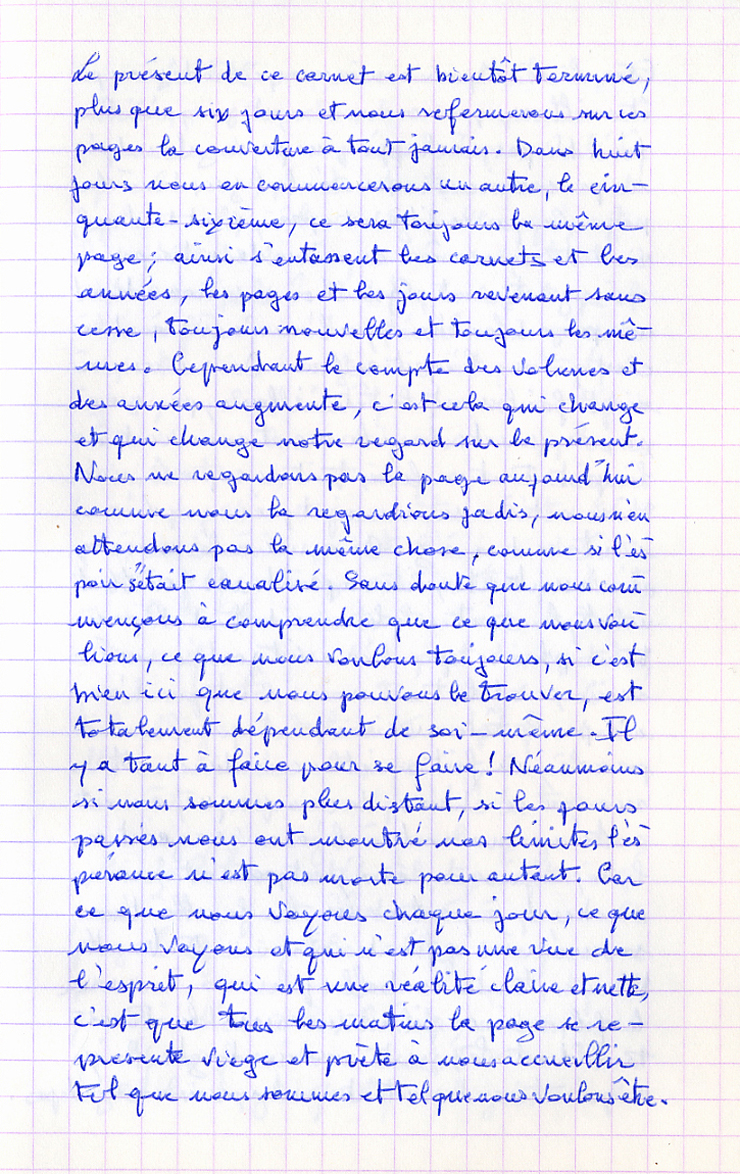 Le présent de ce carnet est bientôt terminé,
plus que six jours et nous refermerons sur ces
pages la couverture à tout jamais. Dans huit
jours nous en commencerons un autre, le cin-
quante-sixième, ce sera toujours la même
page ; ainsi s'entassent les carnets et les
années, les pages et les jours revenant sans
cesse, toujours nouvelles et toujours les mê-
mes. Cependant le compte des volumes et
des années augmente, c'est cela qui change
et qui change notre regard sur le présent.
Nous ne regardons pas la page aujourd'hui
comme nous la regardions jadis, nous n'en
attendons pas la même chose, comme si l'es
poir s'était canalisé. Sans doute que nous com
mençons à comprendre que ce que nous vou
lions, ce que nous voulons toujours, si c'est
bien ici que nous pouvons le trouver, est
totalement dépendant de soi-même. Il
y a tant à faire pour se faire ! Néanmoins
si nous sommes plus distant, si les jours
passés nous ont montré nos limites l'es
pérance n'est pas morte pour autant. Car
ce que nous voyons chaque jour, ce que
nous voyons et qui n'est pas une vue de
l'esprit, qui est une réalité claire et nette,
c'est que tous les matins la page se re-
présente vierge et prête à nous accueillir
tel que nous sommes et tel que nous voulons être.